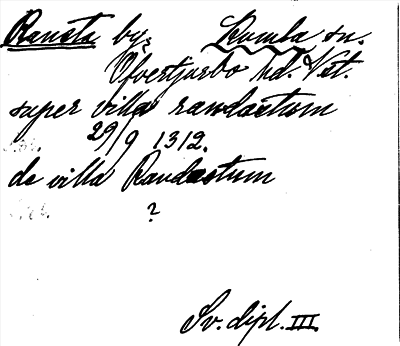 Ransta by, Kumla sn.
Öfvertjurbo hd. Vst.
super villa randastum
29/9 1312.
de villa Randastum
?
Sv. dipl. III.